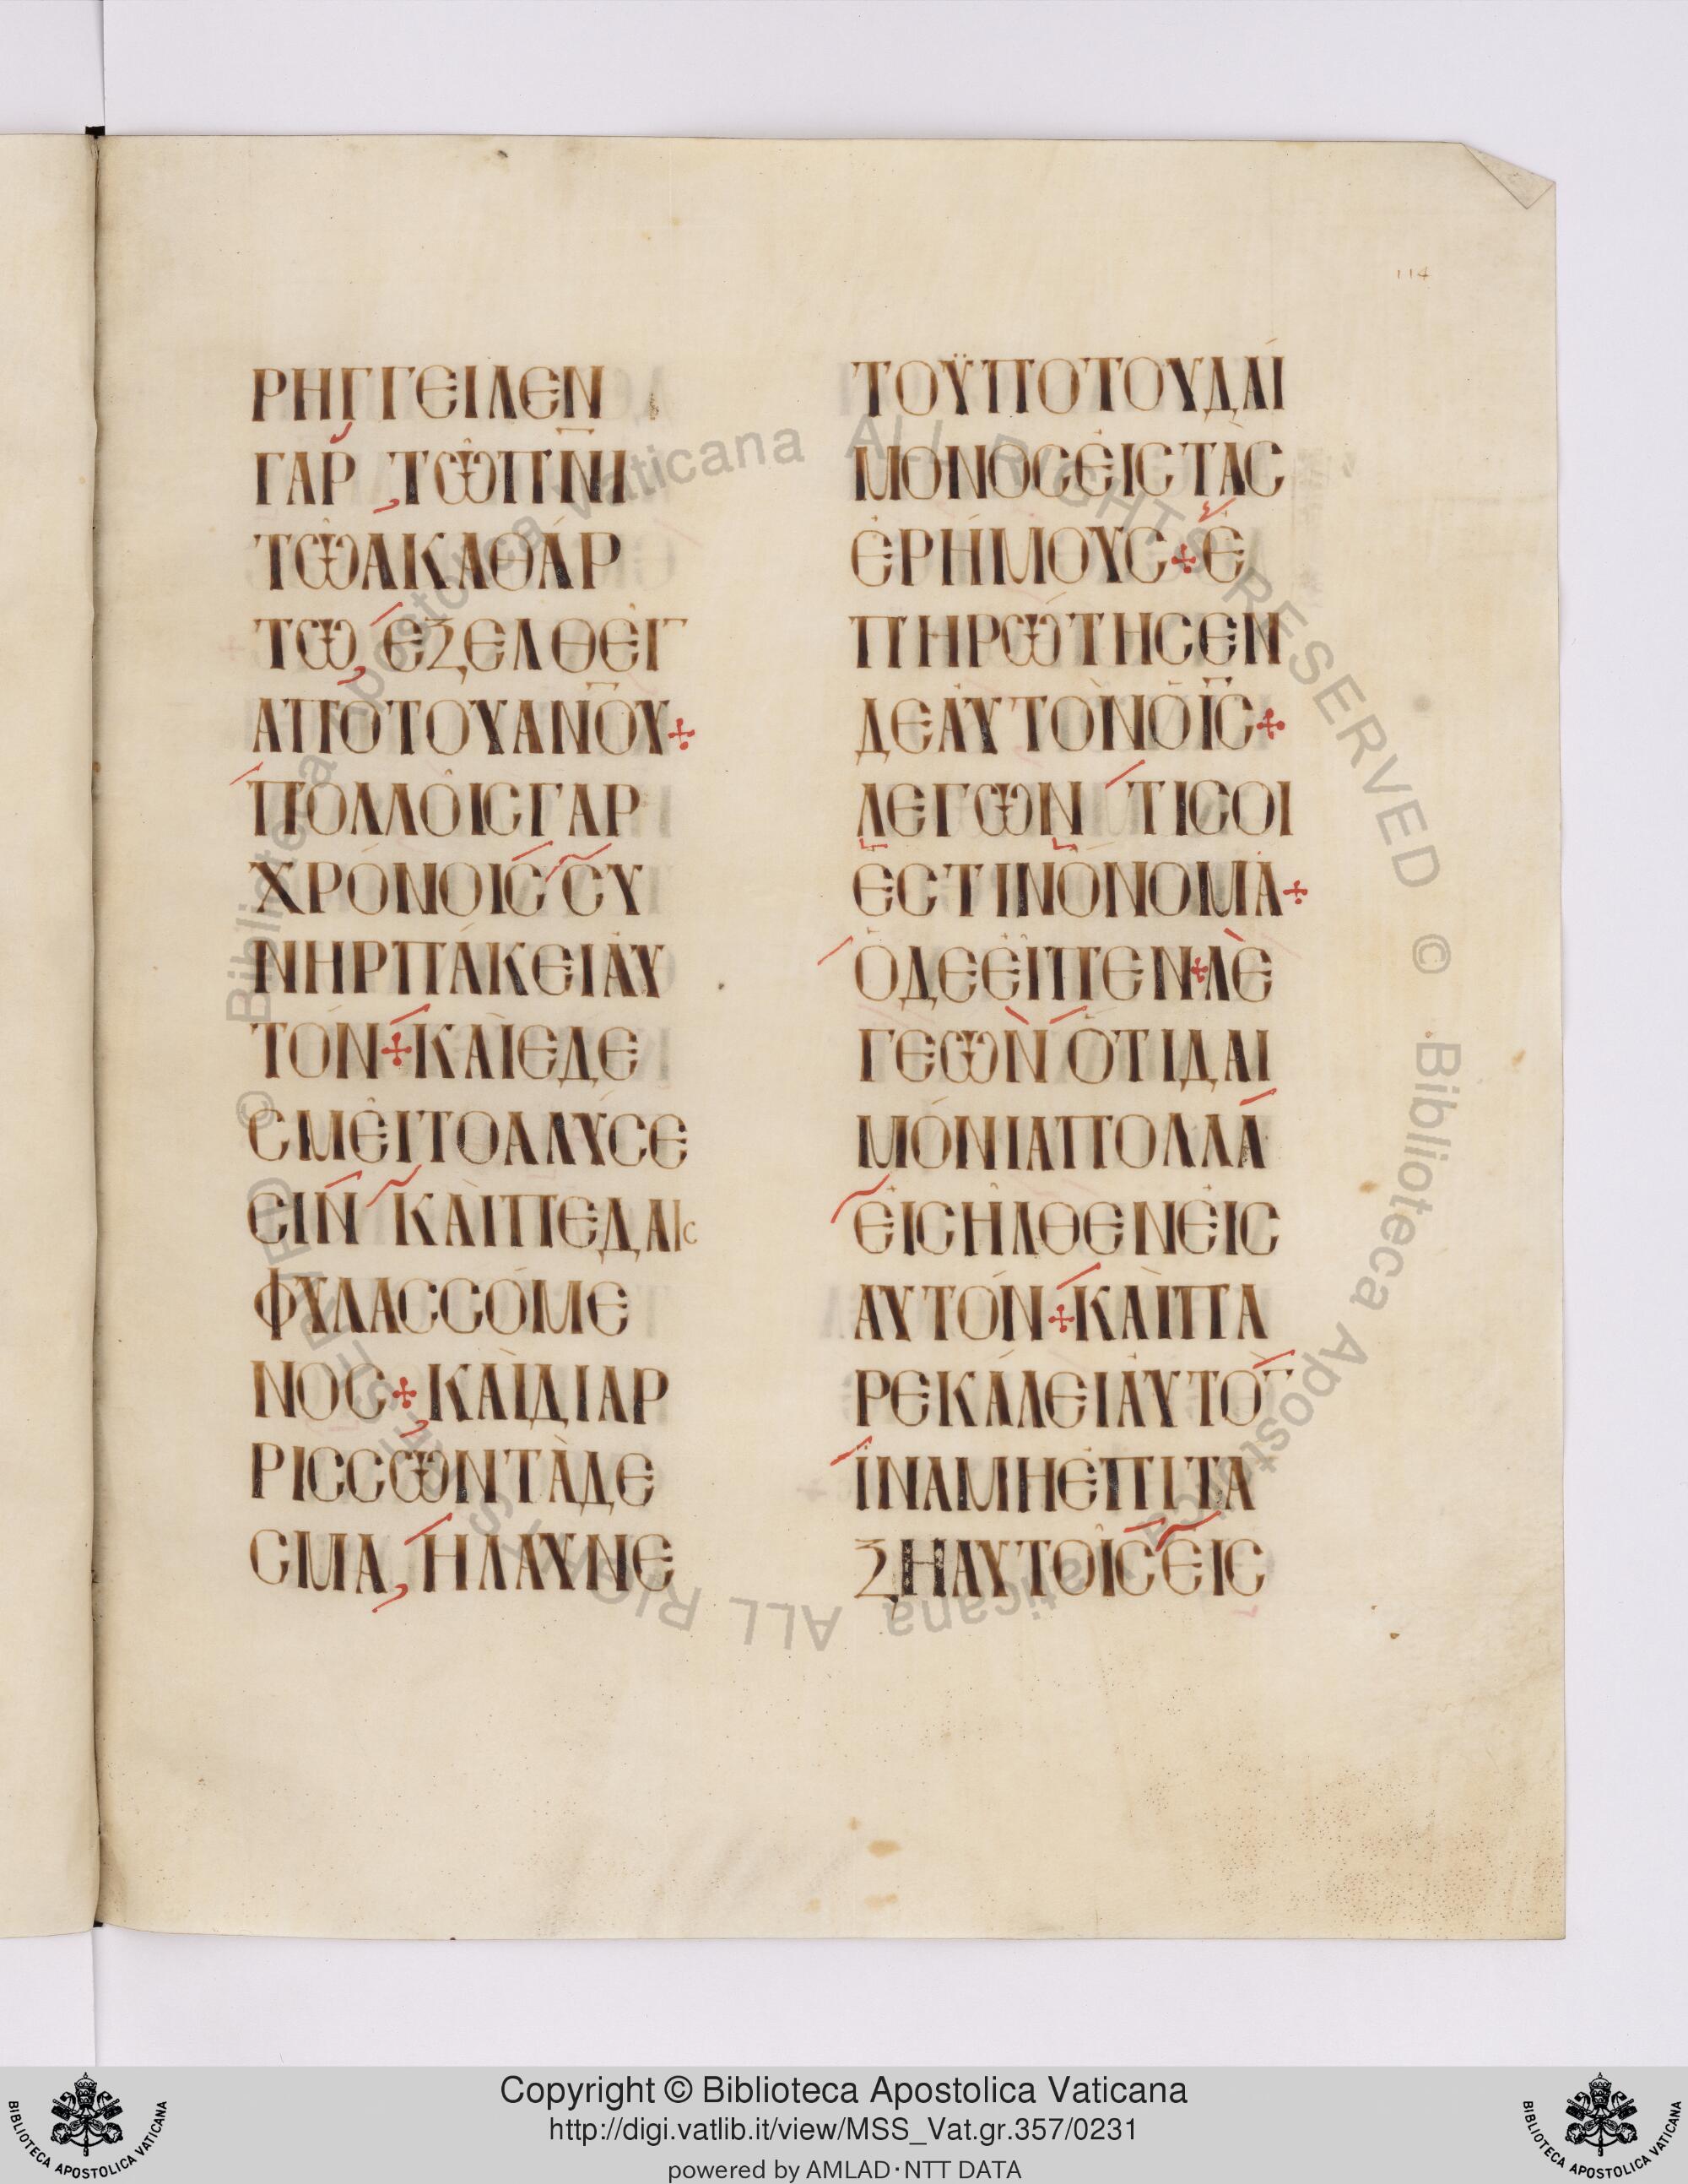 114
ΡΗΓΓΕΙΛΕΝ
ΓΑΡ ΤῶΠ̅Ν̅Ι̅
ΤῶΑΚΑΘΆΡ
ΤΩ ἐΞΕΛΘΕῖ̅
ΑΠΟΤΟΥΑ̅Ν̅Ο̅Υ+
ΠΟΛΛΟΙϹΓΑΡ
ΧΡΌΝΟΙϹ ϹΥ
ΝΗΡΠΆΚΕΙΑΥ
ΤΌΝ+ΚΑῚΕΔΕ
ϹΜΕΙΤΟΑΛΎϹΕ
ϹΙΝ ΚΑῚΠΕΔΑΙϲ
ΦΥΛΑϹϹΌΜΕ
ΝΟϹ+ΚΑῚΔΙΑΡ
ΡΙϹϹΩΝΤᾺΔΕ
ϹΜΑ, ΗΛΑΎΝΕ
ΤΟΫΠΟΤΟΥΔΑΊ
ΜΟΝΟϹΕΙϹΤᾺϹ
ΕΡΉΜΟΥϹ+Ε
ΠΗΡΏΤΗϹΕΝ
ΔΕΑΥΤῸΝΟΙ̅Ϲ̅+
ΛΕΓΩΝ ΤΙϹΟΙ
ΕϹΤΙΝΌΝΟΜΑ+
ὉΔΕΕΙΠΕΝ+ΛΕ
ΓΕΩῺΝ ὍΤΙΔΑΙ
ΜΌΝΙΑΠΟΛΛΆ
ΕΙϹΗΛΘΕΝΕΙϹ
ΑΥΤΌΝ+ΚΑῚΠΑ
ΡΕΚΆΛΕΙΑΥΤῸ̅
ΪΝΑΜΗΕΠΙΤΑ
ΞΗΑΥΤΟΙϹΕΙϹ
© Biblioteca Apostolica Vaticana ALL RIGHTS RESERVED © Biblioteca Apostolica Vaticana ALL RIGHTS RESERVED
Copyright © Biblioteca Apostolica Vaticana
http://digi.vatlib.it/view/MSS_Vat.gr.357/0231
powered by AMLAD·NTT DATA
BIBLIOTECA APOSTOLICA VATICANA
BIBLIOTECA APOSTOLICA VATICANA